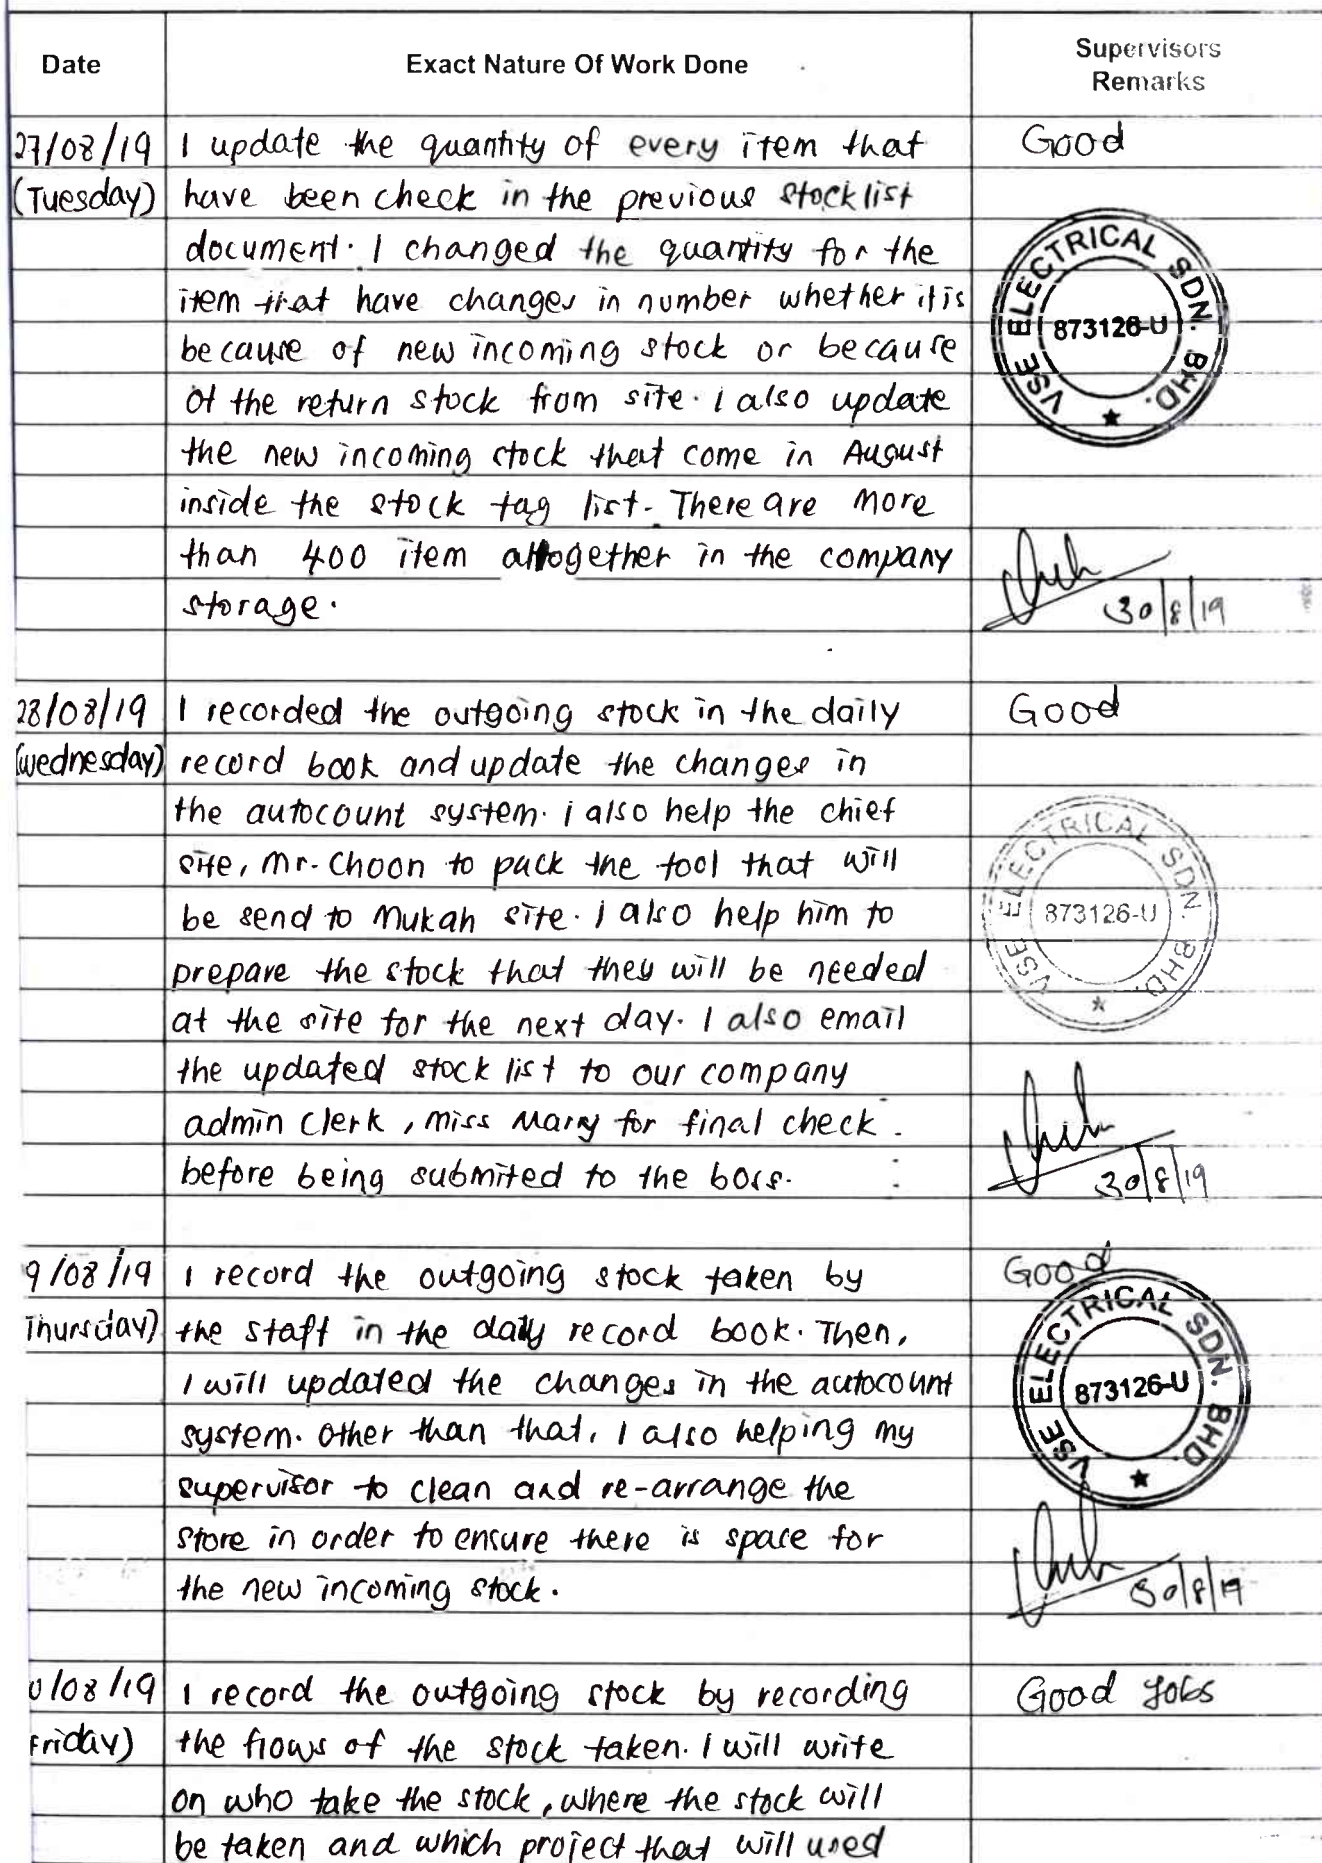 Date Exact Nature Of Work Done Supervisors
Remarks
27/08/19 I update the quantity of every item that Good
(Tuesday) have been check in the previous stock list
document. I changed the quantity for the
item that have changes in number whether it is
because of new incoming stock or because
of the return stock from site. I also update
the new incoming stock that come in August
inside the stock tag list. There are more
than 400 item altogether in the company
storage.
VSE ELECTRICAL SDN. BHD.
873126-U
30/8/19
28/08/19 I recorded the outgoing stock in the daily Good
(Wednesday) record book and update the changes in
the autocount system. I also help the chief
site, Mr. Choon to pack the tool that will
be send to Mukah site. I also help him to
prepare the stock that they will be needed
at the site for the next day. I also email
the updated stock list to our company
admin clerk, miss Marry for final check
before being submited to the boss.
VSE ELECTRICAL SDN. BHD.
873126-U
30/8/19
9/08/19 I record the outgoing stock taken by Good
Thursday) the staff in the daily record book. Then,
I will updated the changes in the autocount
system. Other than that, I also helping my
supervisor to clean and re-arrange the
store in order to ensure there is space for
the new incoming stock.
VSE ELECTRICAL SDN. BHD.
873126-U
30/8/19
0/08/19 I record the outgoing stock by recording Good Jobs
Friday) the flows of the stock taken. I will write
on who take the stock, where the stock will
be taken and which project that will used